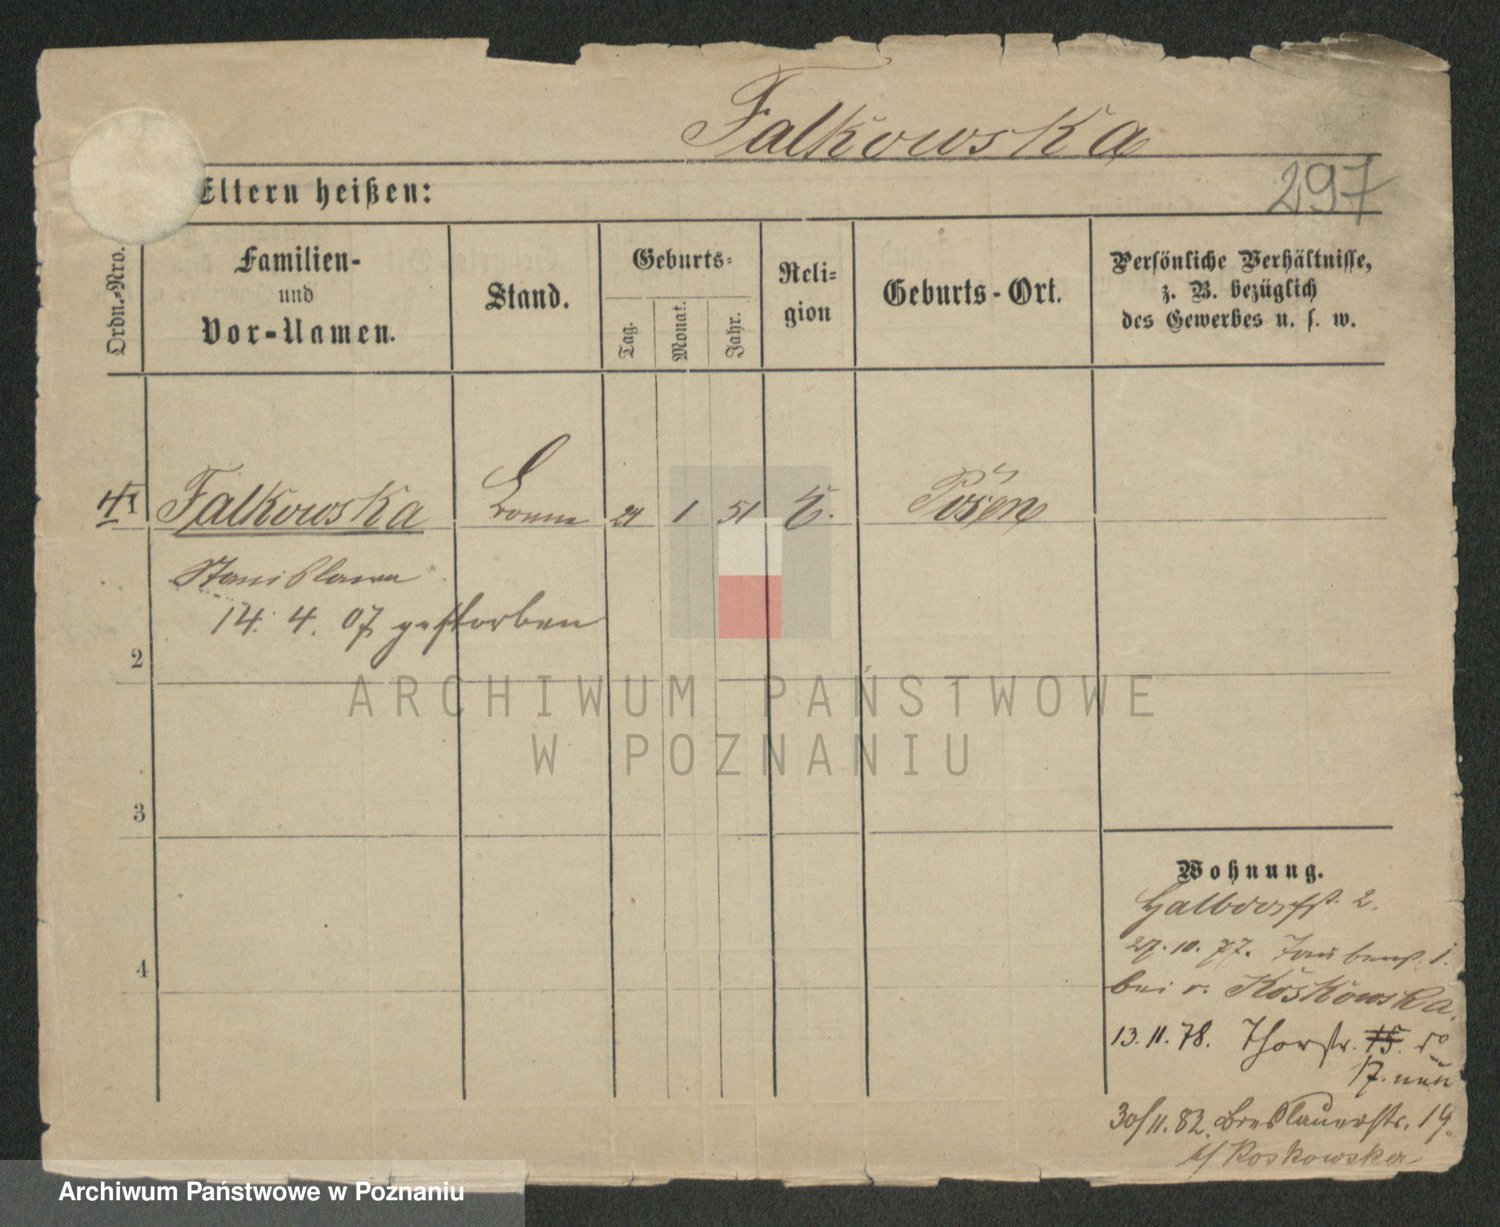 Falkowska
Eltern heißen:
297
Ordn.-Nro.
Familien-
und
Vor-Namen.
Stand.
Geburts-
Tag.
Monat.
Jahr.
Reli-
gion
Geburts-Ort.
Persönliche Verhältnisse,
z. B. bezüglich
des Gewerbes u. s. w.
Falkowska
Bonne
24
1
51
K.
Posen
Stanislawa
14. 4. 07 gestorben
2
ARCHIWUM PAŃSTWOWE
W POZNANIU
3
Wohnung.
Halbdorfst. 2.
27. 10. 77. Taubenst. 1.
4
bei v. Koskowska.
13. 11. 78. Thorstr. 15.
17. neu
30/11. 82. Breslauerstr. 19.
b/ Koskowska
Archiwum Państwowe w Poznaniu